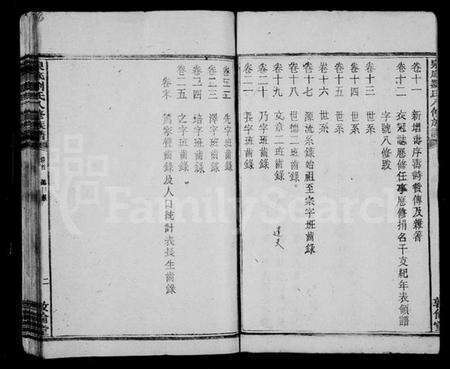 卷十一 新增壽序壽詩餐傳及雜著
卷十二 衣冠誌歷修任事歷修捐名干支紀年表領譜
字號八修跋
卷十三 世系
卷十四 世系
卷十五 世系
卷十六 世系
卷十七 源流系錄始祖至宗字班齒錄
卷十八 世德二班齒錄
卷十九 文章二班齒錄
卷二十 乃字班齒錄
卷二一 長字班齒錄
卷二二 先字班齒錄
卷二三 澤字班齒錄
卷二四 培字班齒錄
卷二五 二班齒錄
卷末 齒錄及人口統計表長生齒錄
二
敦倫堂
FamilySearch